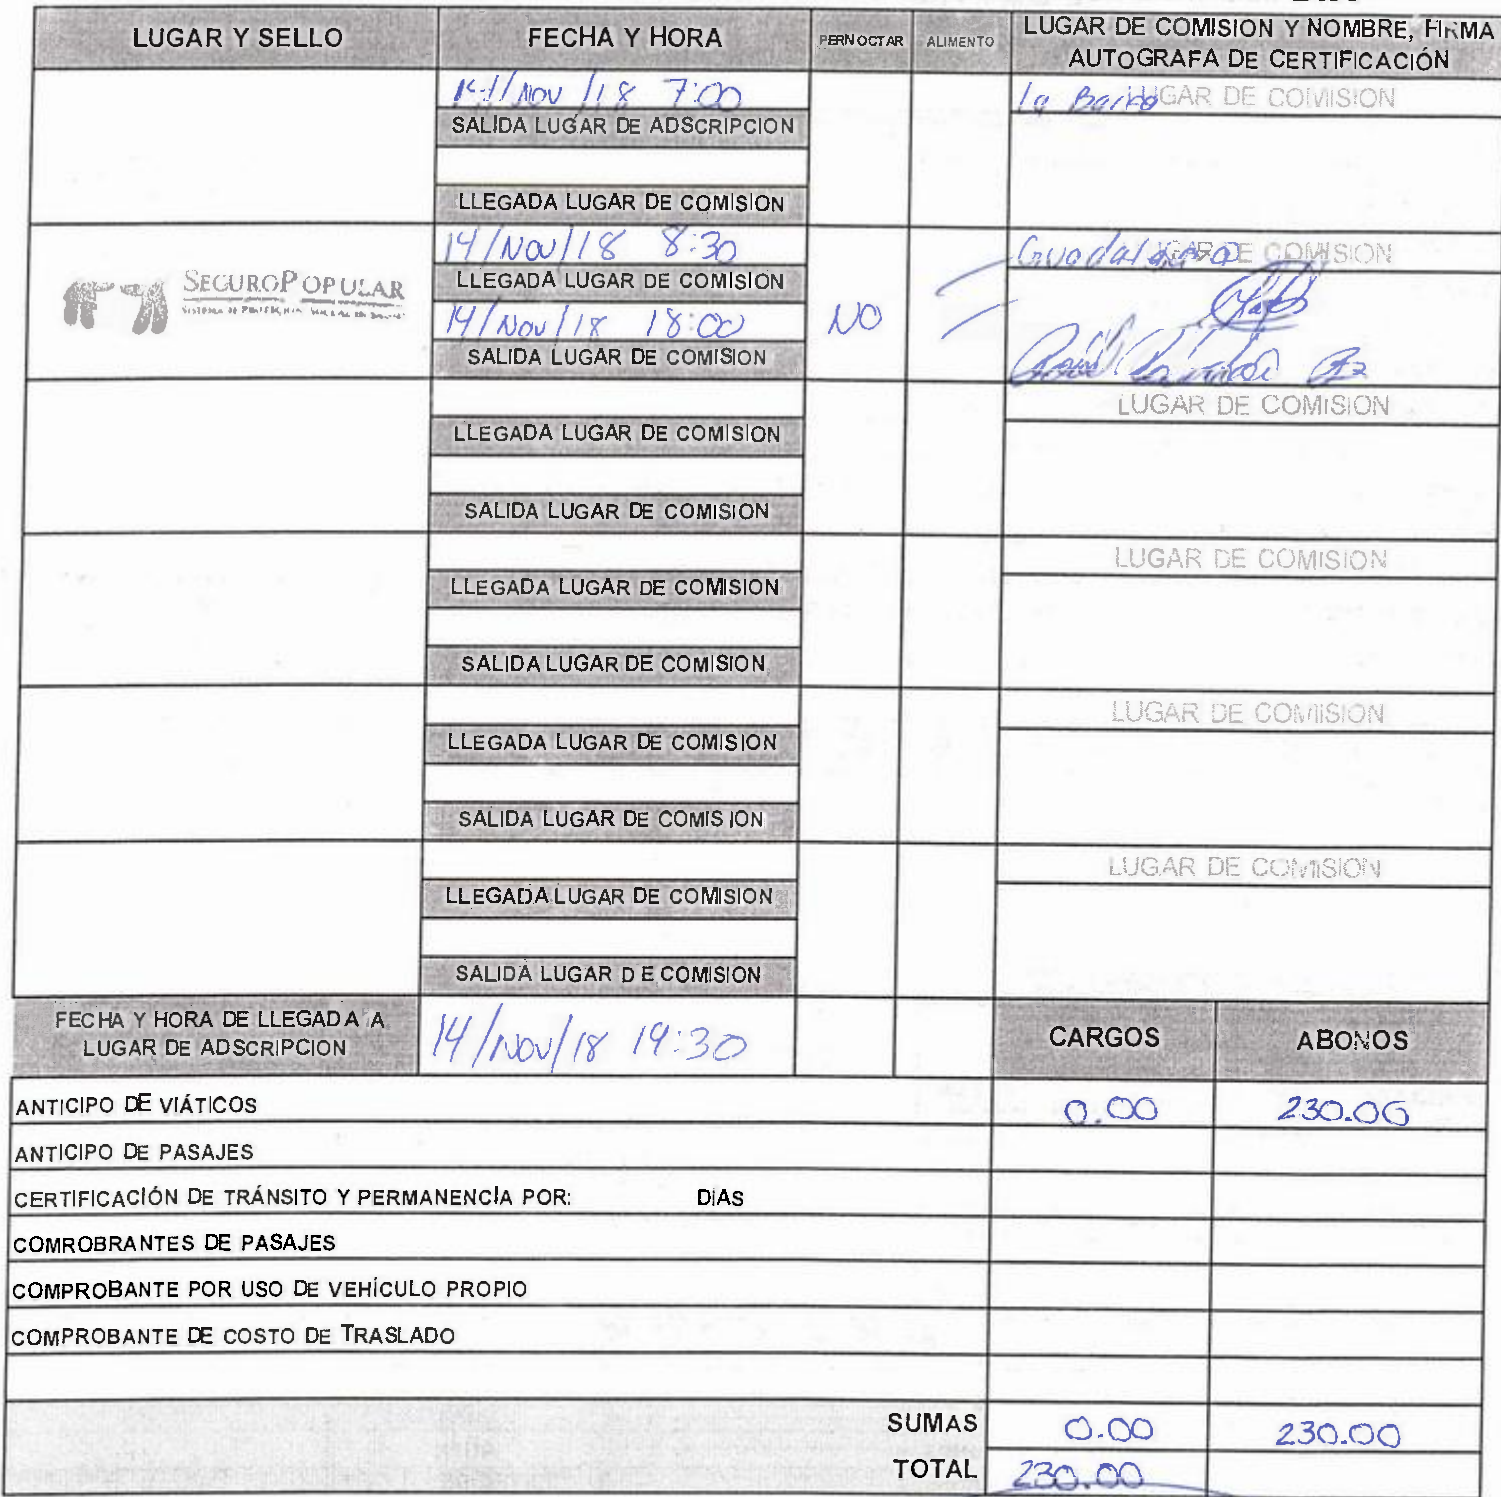 LUGAR Y SELLO FECHA Y HORA PERNOCTAR ALIMENTO LUGAR DE COMISION Y NOMBRE, FIRMA
AUTOGRAFA DE CERTIFICACIÓN
14/Nov/18 7:00 La Barca LUGAR DE COMISION
SALIDA LUGAR DE ADSCRIPCION
LLEGADA LUGAR DE COMISION
14/Nov/18 8:30 Guadalajara LUGAR DE COMISION
SEGUROPOPULAR
SISTEMA DE PROTECCIÓN SOCIAL EN SALUD
LLEGADA LUGAR DE COMISION
14/Nov/18 18:00 NO
SALIDA LUGAR DE COMISION
LUGAR DE COMISION
LLEGADA LUGAR DE COMISION
SALIDA LUGAR DE COMISION
LUGAR DE COMISION
LLEGADA LUGAR DE COMISION
SALIDA LUGAR DE COMISION
LUGAR DE COMISION
LLEGADA LUGAR DE COMISION
SALIDA LUGAR DE COMISION
LUGAR DE COMISION
LLEGADA LUGAR DE COMISION
SALIDA LUGAR DE COMISION
FECHA Y HORA DE LLEGADA A
LUGAR DE ADSCRIPCION 14/Nov/18 19:30 CARGOS ABONOS
ANTICIPO DE VIÁTICOS 0.00 230.00
ANTICIPO DE PASAJES
CERTIFICACIÓN DE TRÁNSITO Y PERMANENCÍA POR: DIAS
COMROBRANTES DE PASAJES
COMPROBANTE POR USO DE VEHÍCULO PROPIO
COMPROBANTE DE COSTO DE TRASLADO
SUMAS 0.00 230.00
TOTAL 230.00